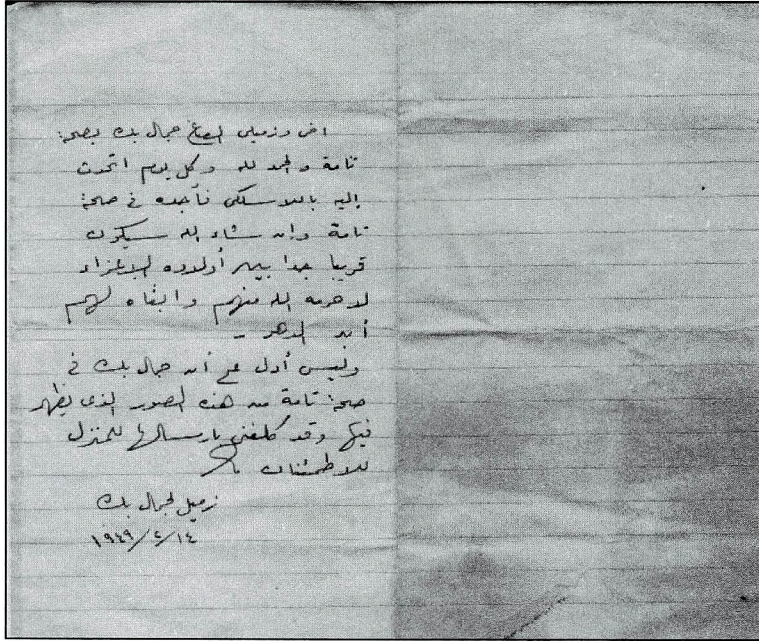 أخى وزميلى الصاغ جمال بك بصحة
تامة والحمد لله وكل يوم اتحدث
إليه باللاسلكى فأجده فى صحة
تامة وإن شاء الله سيكون
قريبا جدا بين أولاده الإعزاء
لا حرمه الله منهم وابقاه لهم
أبد الدهر -
وليس أدل على أن جمال بك فى
صحة تامة من هذه الصور الذى يظهر
فيها وقد كلفنى بارسالها للمنزل
للاطمئنان
زميل لجمال بك
١٤/٢/١٩٤٩